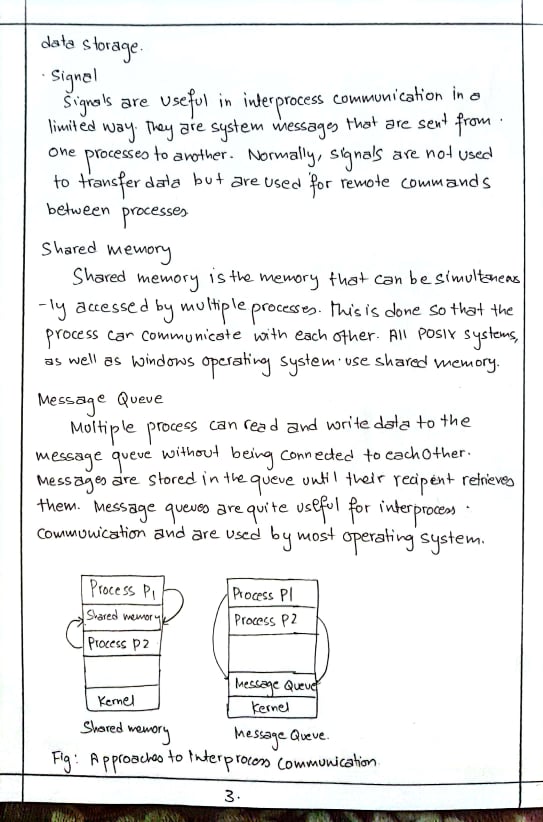 data storage.
· Signal
Signals are useful in interprocess communication in a
limited way. They are system messages that are sent from
one processes to another. Normally, signals are not used
to transfer data but are used for remote commands
between processes
Shared memory
Shared memory is the memory that can be simultaneous
-ly accessed by multiple processes. This is done so that the
process can communicate with each other. All POSIX systems,
as well as windows operating system use shared memory.
Message Queue
Multiple process can read and write data to the
message queue without being connected to each other.
Messages are stored in the queue until their recipent retrieves
them. Message queues are quite useful for interprocess
communication and are used by most operating system.
Process P1
Shared memory
Process P2
Kernel
Shared memory
Process P1
Process P2
Message Queue
Kernel
Message Queue.
Fig: Approaches to Interprocess Communication.
3.